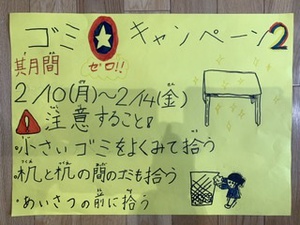 ゴミ キャンペーン2
ゼロ!!
其月間
2/10(月)～2/14(金)
注意すること!
・小さいゴミをよくみて拾う
・机と机の間のゴミも拾う
・あいさつの前に拾う